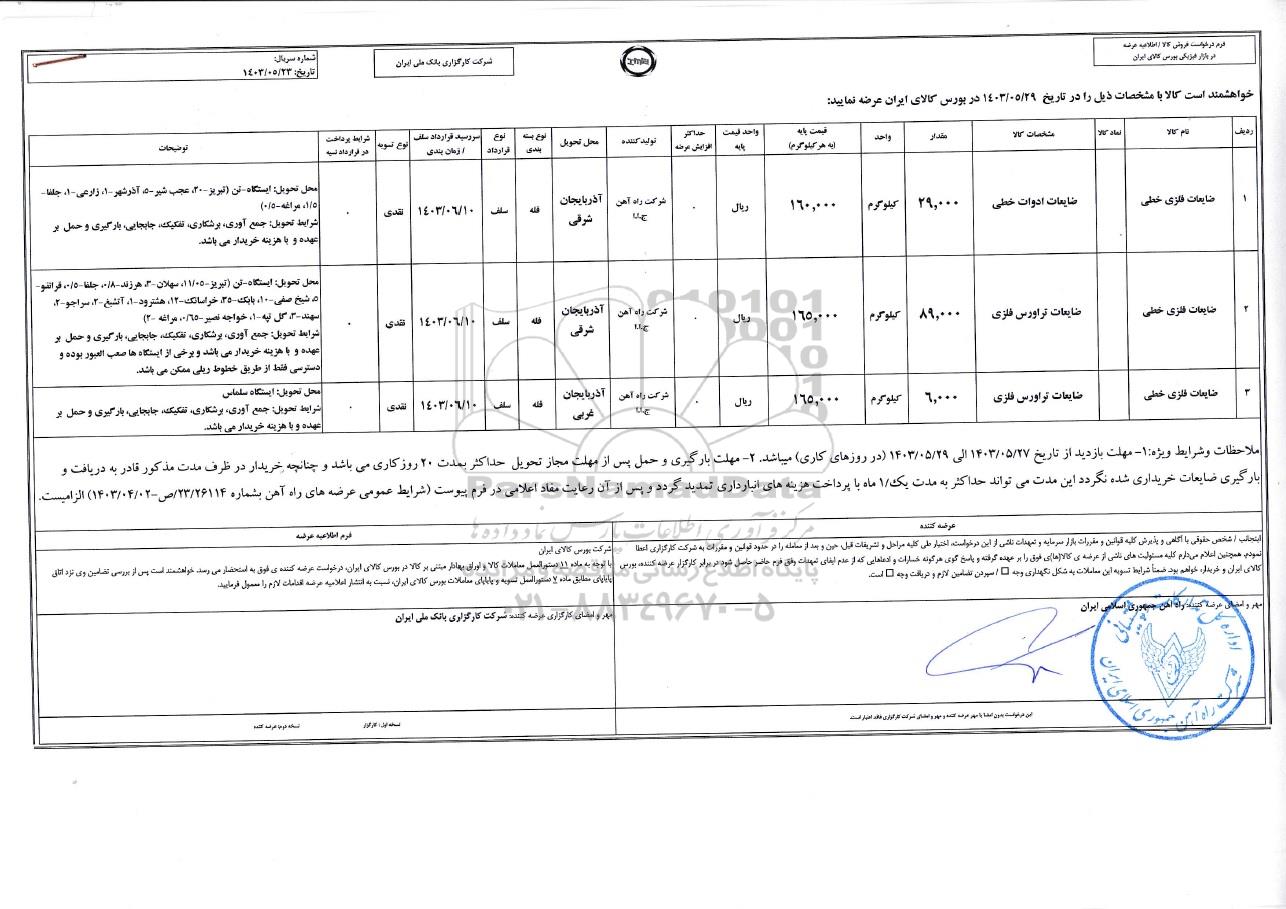 فرم درخواست فروش کالا / اطلاعیه عرضه
در بازار فیزیکی بورس کالای ایران
شرکت کارگزاری بانک ملی ایران
شماره سریال:
تاریخ: ۱۴۰۳/۰۵/۲۳
خواهشمند است کالا با مشخصات ذیل را در تاریخ ۱۴۰۳/۰۵/۲۹ در بورس کالای ایران عرضه نمایید:
ردیف نام کالا نماد کالا مشخصات کالا مقدار واحد قیمت پایه (به هر کیلوگرم) واحد قیمت پایه حداکثر افزایش عرضه تولیدکننده محل تحویل نوع بسته بندی نوع قرارداد سررسید قرارداد سلف / زمان بندی نوع تسویه شرایط پرداخت در قرارداد نسیه توضیحات
۱ ضایعات فلزی خطی ضایعات ادوات خطی ۲۹,۰۰۰ کیلوگرم ۱۶۰,۰۰۰ ریال ۰ شرکت راه آهن ج.ا.ا آذربایجان شرقی فله سلف ۱۴۰۳/۰۶/۱۰ نقدی ۰
محل تحویل: ایستگاه-تن (تبریز-۲۰، عجب شیر-۵، آذرشهر-۱، زارعی-۱، جلفا-
۱/۵، مراغه-۰/۵)
شرایط تحویل: جمع آوری، برشکاری، تفکیک، جابجایی، بارگیری و حمل بر
عهده و با هزینه خریدار می باشد.
۲ ضایعات فلزی خطی ضایعات تراورس فلزی ۸۹,۰۰۰ کیلوگرم ۱۶۵,۰۰۰ ریال ۰ شرکت راه آهن ج.ا.ا آذربایجان شرقی فله سلف ۱۴۰۳/۰۶/۱۰ نقدی ۰
محل تحویل: ایستگاه-تن (تبریز-۱۱/۰۵، سهلان-۳، هرزند-۰/۸، جلفا-۰/۵، قرانقو-
۵، شیخ صفی-۱۰، بابک-۳۵، خراسانک-۱۲، هشترود-۱، آتشبغ-۲، سراجو-۲،
سهند-۳، گل تپه-۱، خواجه نصیر-۰/۶۵، مراغه -۲)
شرایط تحویل: جمع آوری، برشکاری، تفکیک، جابجایی، بارگیری و حمل بر
عهده و با هزینه خریدار می باشد و برخی از ایستگاه ها صعب العبور بوده و
دسترسی فقط از طریق خطوط ریلی ممکن می باشد.
۳ ضایعات فلزی خطی ضایعات تراورس فلزی ۶,۰۰۰ کیلوگرم ۱۶۵,۰۰۰ ریال ۰ شرکت راه آهن ج.ا.ا آذربایجان غربی فله سلف ۱۴۰۳/۰۶/۱۰ نقدی ۰
محل تحویل: ایستگاه سلماس
شرایط تحویل: جمع آوری، برشکاری، تفکیک، جابجایی، بارگیری و حمل بر
عهده و با هزینه خریدار می باشد.
ملاحظات وشرایط ویژه:۱- مهلت بازدید از تاریخ ۱۴۰۳/۰۵/۲۷ الی ۱۴۰۳/۰۵/۲۹ (در روزهای کاری) میباشد. ۲- مهلت بارگیری و حمل پس از مهلت مجاز تحویل حداکثر بمدت ۲۰ روز کاری می باشد و چنانچه خریدار در ظرف مدت مذکور قادر به دریافت و
بارگیری ضایعات خریداری شده نگردد این مدت می تواند حداکثر به مدت یک/۱ ماه با پرداخت هزینه های انبارداری تمدید گردد و پس از آن رعایت مفاد اعلامی در فرم پیوست (شرایط عمومی عرضه های راه آهن بشماره ۲۳/۲۶۱۱۴/ص-۱۴۰۳/۰۴/۰۲) الزامیست.
عرضه کننده
اینجانب / شخص حقوقی با آگاهی و پذیرش کلیه قوانین و مقررات بازار سرمایه و تعهدات ناشی از این درخواست، اختیار طی کلیه مراحل و تشریفات قبل، حین و بعد از معامله را در حدود قوانین و مقررات به شرکت کارگزاری اعطا
نمودم. همچنین اعلام می‌دارم کلیه مسئولیت های ناشی از عرضه ی کالا(ها)ی فوق را بر عهده گرفته و پاسخ گوی هرگونه خسارات و ادعاهایی که از عدم ایفای تعهدات وفق فرم حاضر حاصل شود در برابر کارگزار عرضه کننده، بورس
کالای ایران و خریدار، خواهم بود. ضمناً شرایط تسویه این معاملات به شکل نگهداری وجه □ / سپردن تضامین لازم و دریافت وجه □ است.
مهر و امضای عرضه کننده: راه آهن جمهوری اسلامی ایران
فرم اطلاعیه عرضه
شرکت بورس کالای ایران
با توجه به ماده ۱۱ دستورالعمل معاملات کالا و اوراق بهادار مبتنی بر کالا در بورس کالای ایران، درخواست عرضه کننده ی فوق به استحضار می رسد. خواهشمند است پس از بررسی تضامین وی نزد اتاق
پایاپای مطابق ماده ۷ دستورالعمل تسویه و پایاپای معاملات بورس کالای ایران، نسبت به انتشار اعلامیه عرضه اقدامات لازم را معمول فرمایید.
مهر و امضای کارگزاری عرضه کننده: شرکت کارگزاری بانک ملی ایران
این درخواست بدون امضا یا مهر عرضه کننده و مهر و امضای شرکت کارگزاری فاقد اعتبار است.
نسخه اول: کارگزار
نسخه دوم: عرضه کننده
ParsNamadData
مرکز فرآوری اطلاعات پارس نماد داده ها
پایگاه اطلاع رسانی مناقصه و مزایده
۰۲۱-۸۸۳۴۹۶۷۰-۵
شرکت راه آهن جمهوری اسلامی ایران